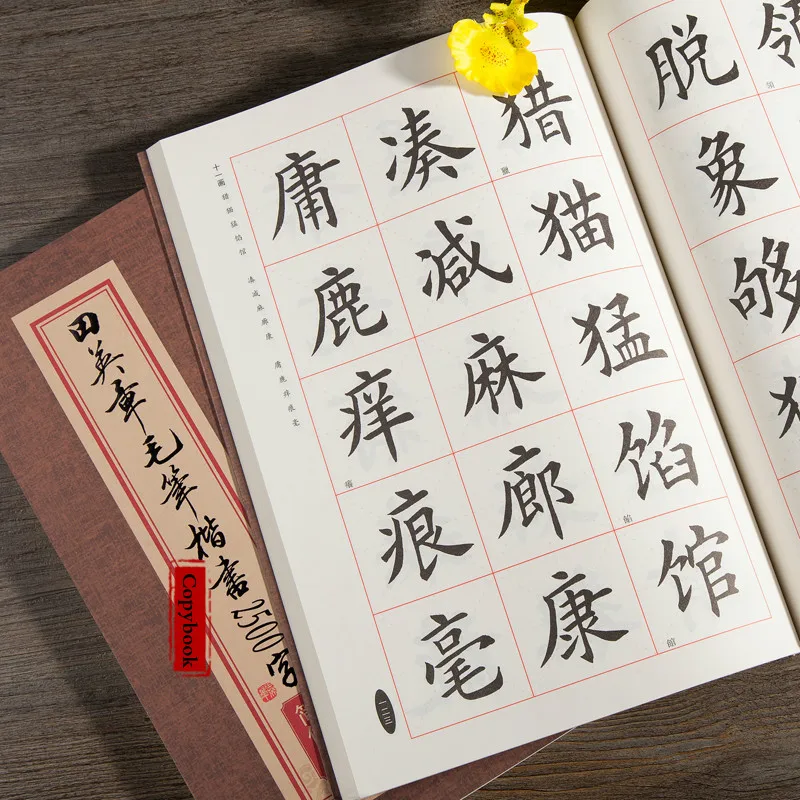 田英章毛筆楷書2500字
Copybook
十一画 猎猫猛馅馆 凑减麻廊康 庸鹿痒痕毫
猎猫猛馅馆
凑减麻廊康
庸鹿痒痕毫
獵
餡
館
癢
一二三
脱象够
领
領